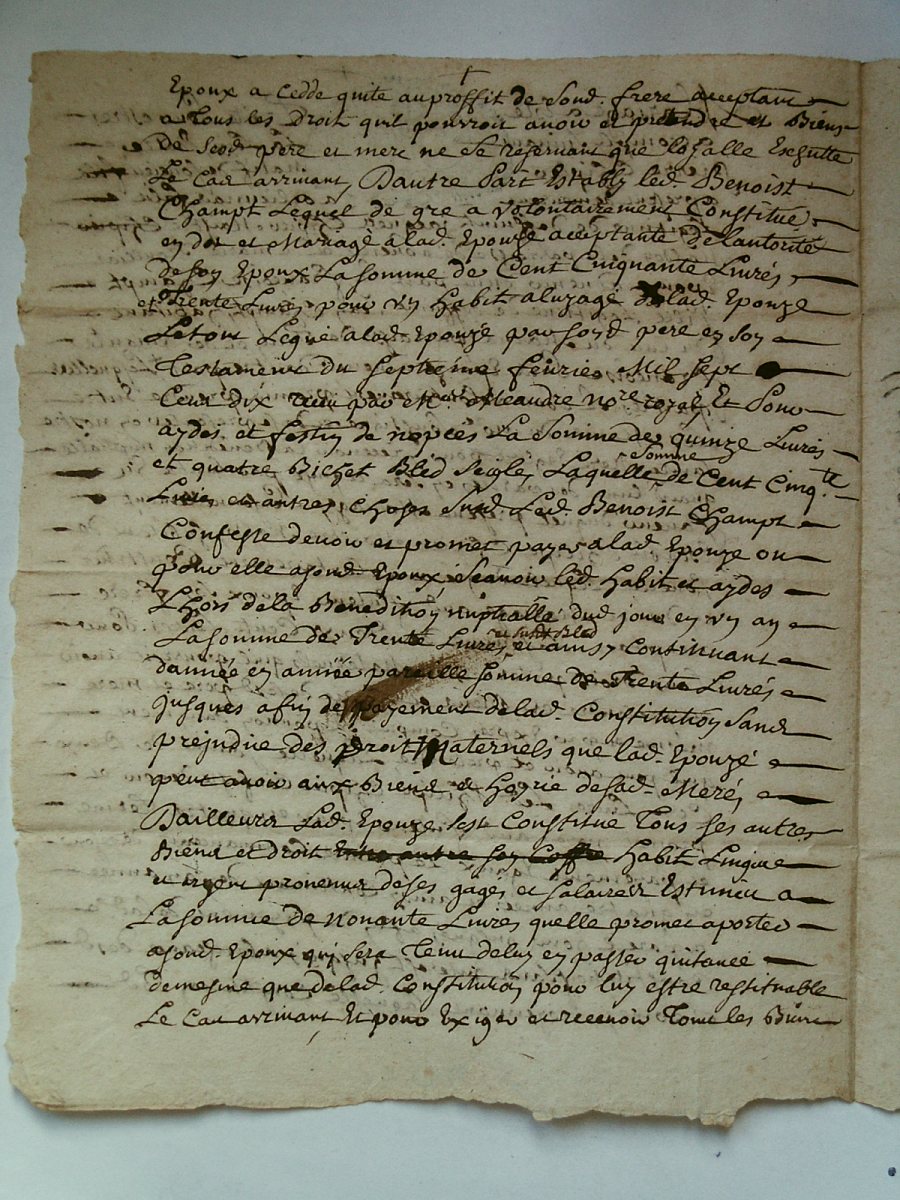 Epoux a cedde quite auproffit de Sond. frere acceptant
a Tous les Droit quil pourroit auoir et pretendre et Biens
De Sesd. pere et mere ne Se reseruant que
Le Cas arriuant, Dautre Part Estably led. Benoist
Champt Lequel de gre a Volontairement Constitué
en dot et Mariage a lad. Epouze acceptante de lautorité
de son Epoux La somme de Cent Cinquante Liures
et Trente Liures pour vn habit aluzage de lad. Epouze
Letout Legué a lad. Epouze par sond pere en son
Testament du septieme feurier Mil sept
Cent dix receu par Mre. Meandre nore. royal, Et Pour
aydes et festin de nopces La Somme de quinze Liures
et quatre Bichet Bled Seigle, Laquelle Somme de Cent Cinqte.
Liures et autres Choses Susd. Led. Benoist Champt
Confesse deuoir et promet payer a lad. Epouze ou
pour elle a sond. Epoux Scauoir led. habit et aydes
Lhors de la Benedition nuptialle dud. jour en vn an
La somme de Trente Liures et susd. Bled et ainsy Continuant
dannée en année pareille somme de Trente Liures
Jusques a fin de payement de lad. Constitution Sans
prejudice des Droit Maternels que lad. Epouze
peut auoir aux Biens et hoyrie de sad. Mere,
Dailleurs Lad. Epouze sest Constitué Tous ses autres
Biens et droit Entre autre son Coffre habit Lingue
et argent prouenus de ses gages et salaires Estimes a
La somme de nonante Liures quelle promet aporter
a sond. Epoux qui sera Tenu de luy en passer quitance
de mesme que de lad. Constitution pour luy estre restituable
Le Cas arriuant Et pour Exiger et receuoir Tous les Biens